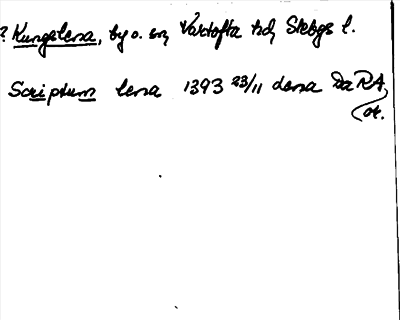 ? Kungslena, by o. sn, Vartofta hd, Skbgs l.
Scriptum lena 1393 23/11 dersa Da RA,
or.